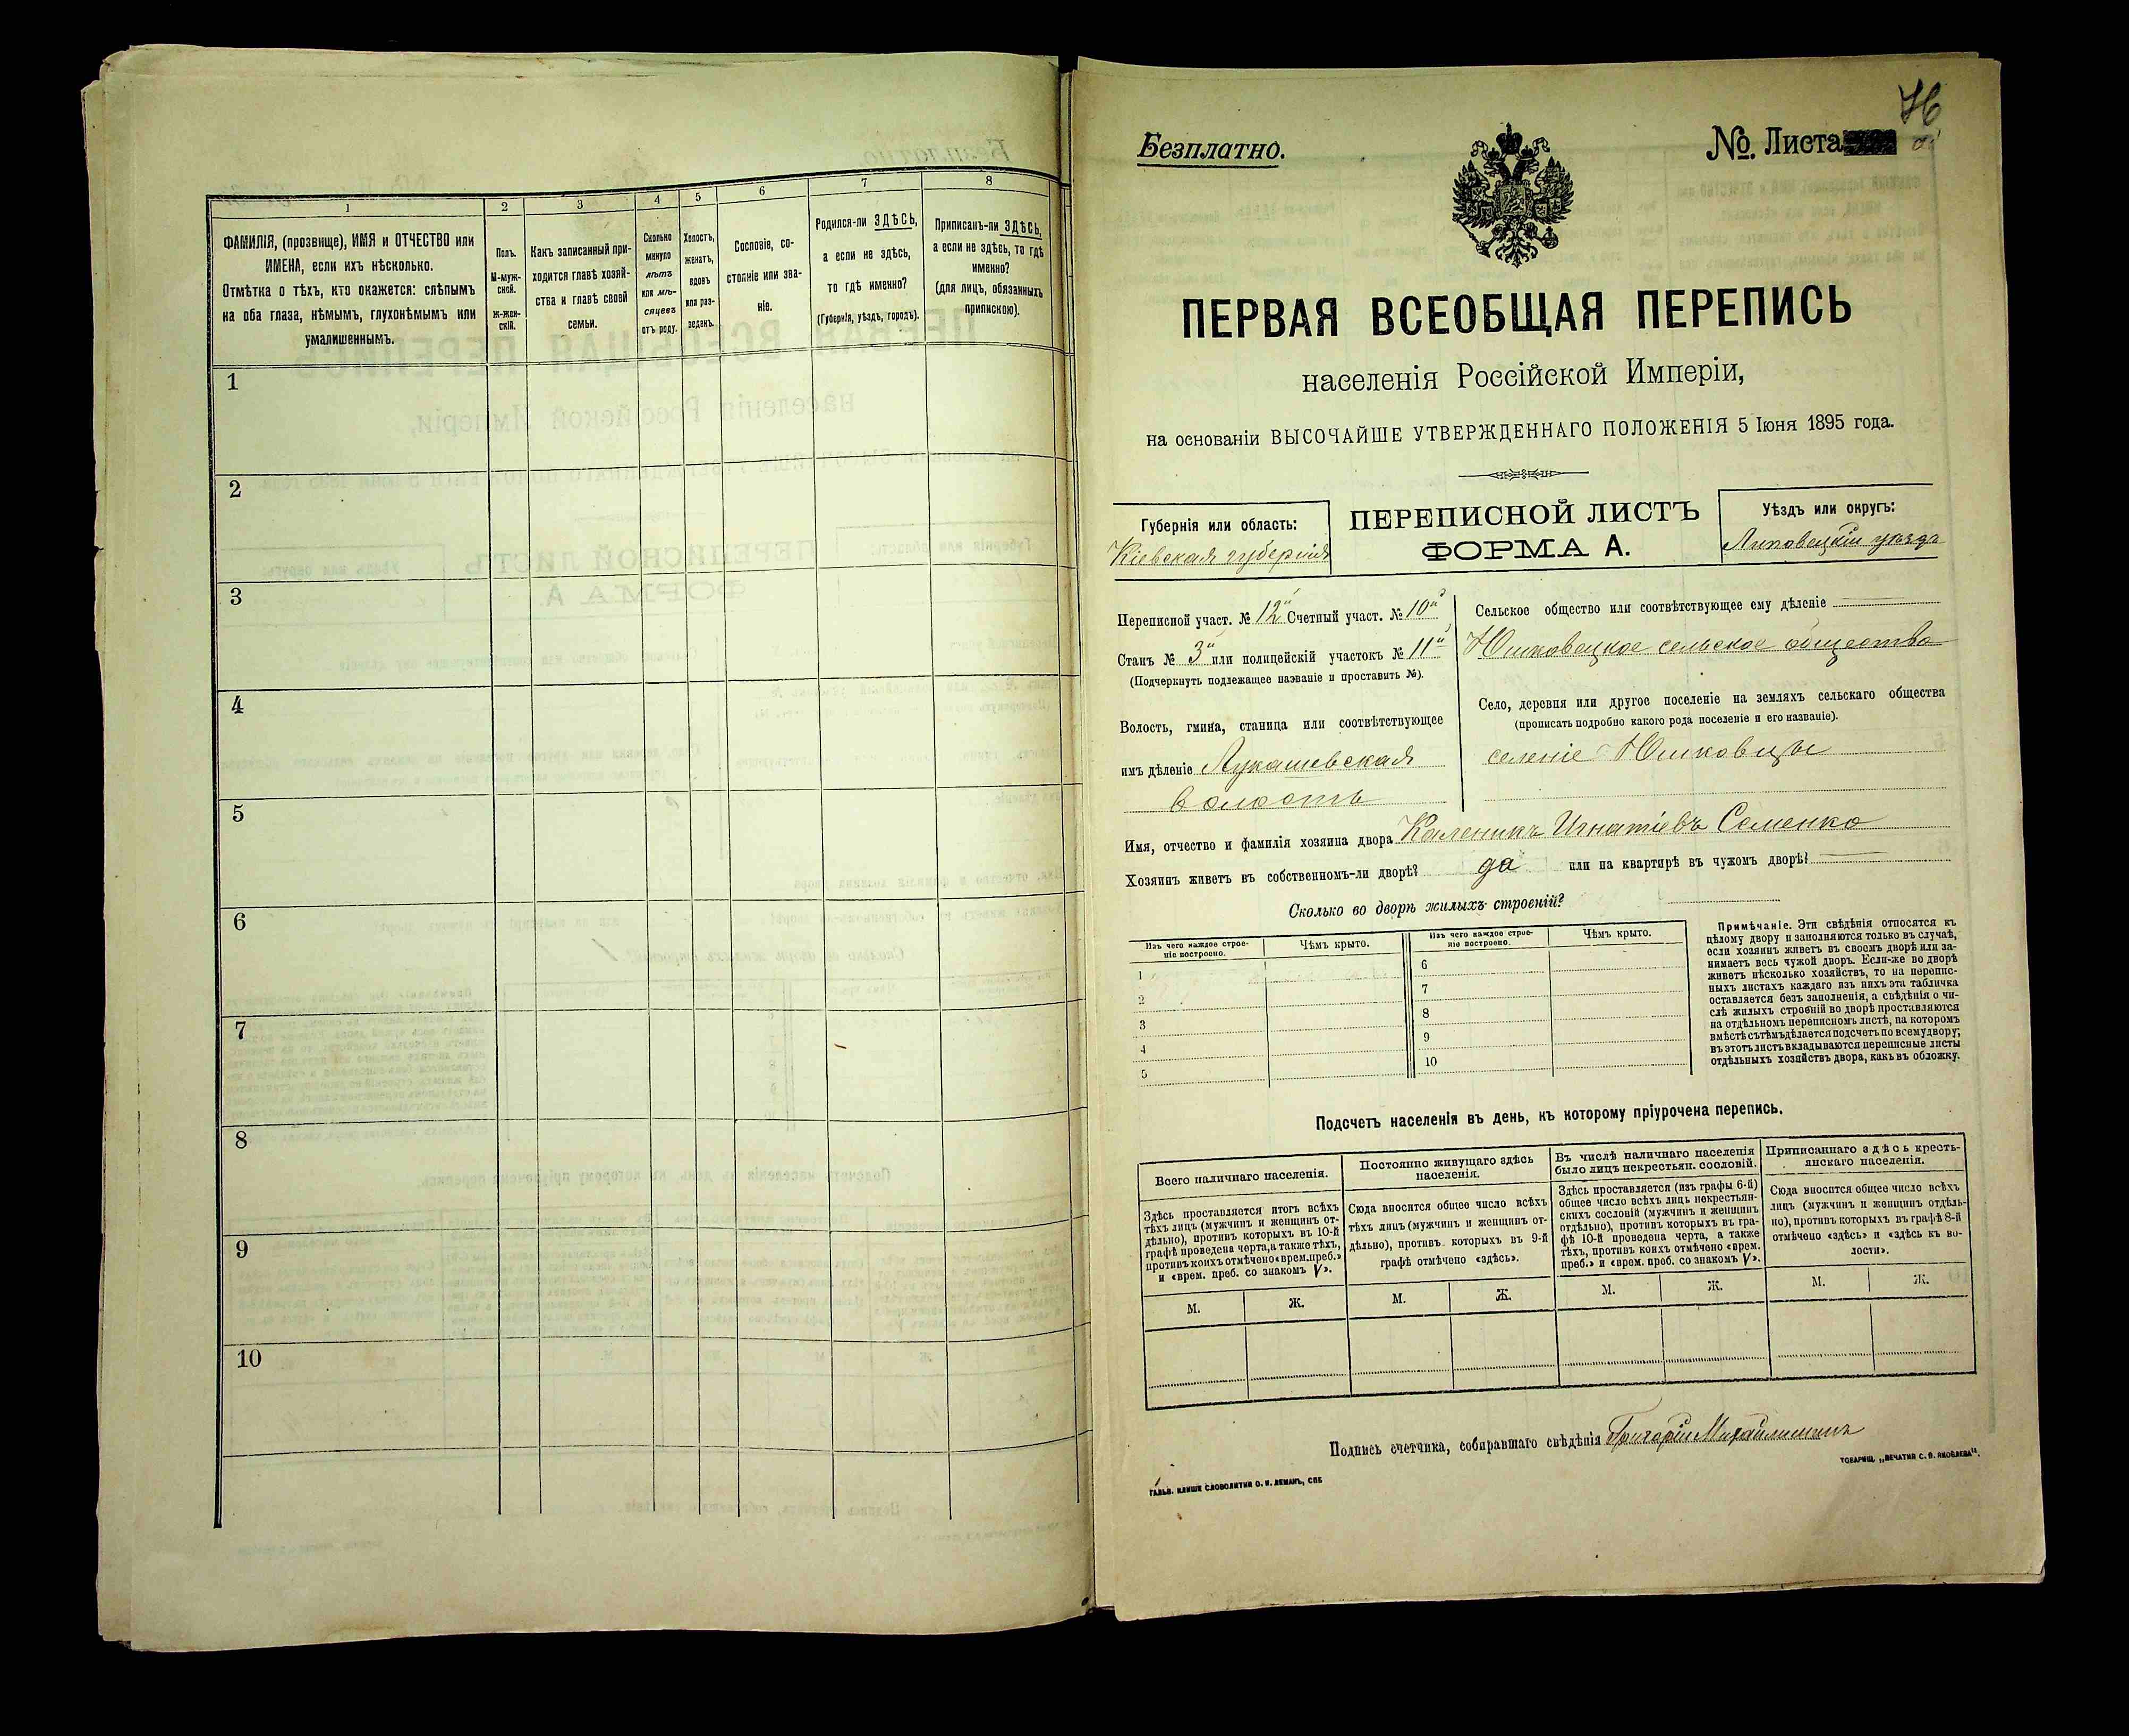 1
2
3
4
5
6
7
8
ФАМИЛІЯ, (прозвище), ИМЯ и ОТЧЕСТВО или
ИМЕНА, если ихъ нѣсколько.
Отмѣтка о тѣхъ, кто окажется: слѣпымъ
на оба глаза, нѣмымъ, глухонѣмымъ или
умалишеннымъ.
Полъ.
М-муж-
ской.
Ж-жен-
скій.
Какъ записанный при-
ходится главѣ хозяй-
ства и главѣ своей
семьи.
Сколько
минуло
лѣтъ
или мѣ-
сяцевъ
отъ роду.
Холостъ,
женатъ,
вдовъ
или раз-
веденъ.
Сословіе, со-
стояніе или зва-
ніе.
Родился-ли ЗДѢСЬ,
а если не здѣсь,
то гдѣ именно?
(Губернія, уѣздъ, городъ).
Приписанъ-ли ЗДѢСЬ,
а если не здѣсь, то гдѣ
именно?
(для лицъ, обязанныхъ
припискою).
1
2
3
4
5
6
7
8
9
10
Безплатно.
№. Листа
76
ПЕРВАЯ ВСЕОБЩАЯ ПЕРЕПИСЬ
населенія Россійской Имперіи,
на основаніи ВЫСОЧАЙШЕ УТВЕРЖДЕННАГО ПОЛОЖЕНІЯ 5 Іюня 1895 года.
Губернія или область:
Кіевская губернія
ПЕРЕПИСНОЙ ЛИСТЪ
ФОРМА А.
Уѣздъ или округъ:
Липовецкій уѣздъ
Переписной участ. № 12" Счетный участ. № 10"
Станъ № 3" или полицейскій участокъ № 11"
(Подчеркнуть подлежащее названіе и проставить №).
Волость, гмина, станица или соотвѣтствующее
имъ дѣленіе Лукашевская
волость
Сельское общество или соотвѣтствующее ему дѣленіе
Юшковецкое сельское общество
Село, деревня или другое поселеніе на земляхъ сельскаго общества
(прописать подробно какого рода поселеніе и его названіе).
селеніе Юшковцы
Имя, отчество и фамилія хозяина двора Каленикъ Игнатіевъ Семенко
Хозяинъ живетъ въ собственномъ-ли дворѣ? да или на квартирѣ въ чужомъ дворѣ?
Сколько во дворѣ жилыхъ строеній?
Изъ чего каждое строе-
ніе построено.
Чѣмъ крыто.
Изъ чего каждое строе-
ніе построено.
Чѣмъ крыто.
1
2
3
4
5
6
7
8
9
10
Примѣчаніе. Эти свѣдѣнія относятся къ
цѣлому двору и заполняются только въ случаѣ,
если хозяинъ живетъ въ своемъ дворѣ или за-
нимаетъ весь чужой дворъ. Если-же во дворѣ
живетъ нѣсколько хозяйствъ, то на перепис-
ныхъ листахъ каждаго изъ нихъ эта табличка
оставляется безъ заполненія, а свѣдѣнія о чи-
слѣ жилыхъ строеній во дворѣ проставляются
на отдѣльномъ переписномъ листѣ, на которомъ
вмѣстѣ съ тѣмъ дѣлается подсчетъ по всему двору;
въ этотъ листъ вкладываются переписные листы
отдѣльныхъ хозяйствъ двора, какъ въ обложку.
Подсчетъ населенія въ день, къ которому пріурочена перепись.
Всего наличнаго населенія.
Постоянно живущаго здѣсь
населенія.
Въ числѣ наличнаго населенія
было лицъ некрестьян. сословій.
Приписаннаго здѣсь кресть-
янскаго населенія.
Здѣсь проставляется итогъ всѣхъ
тѣхъ лицъ (мужчинъ и женщинъ от-
дѣльно), противъ которыхъ въ 10-й
графѣ проведена черта, а также тѣхъ,
противъ коихъ отмѣчено «врем. преб.»
и «врем. преб. со знакомъ V».
Сюда вносится общее число всѣхъ
тѣхъ лицъ (мужчинъ и женщинъ от-
дѣльно), противъ которыхъ въ 9-й
графѣ отмѣчено «здѣсь».
Здѣсь проставляется (изъ графы 6-й)
общее число всѣхъ лицъ некрестьян-
скихъ сословій (мужчинъ и женщинъ
отдѣльно), противъ которыхъ въ гра-
фѣ 10-й проведена черта, а также
тѣхъ, противъ коихъ отмѣчено «врем.
преб.» и «врем. преб. со знакомъ V».
Сюда вносится общее число всѣхъ
лицъ (мужчинъ и женщинъ отдѣль-
но), противъ которыхъ въ графѣ 8-й
отмѣчено «здѣсь» и «здѣсь къ во-
лости».
М.
Ж.
М.
Ж.
М.
Ж.
М.
Ж.
Подпись счетчика, собиравшаго свѣдѣнія Григорій
ГАЛЬВ. КЛИШЕ СЛОВОЛИТНИ О. И. ЛЕМАНЪ, СПБ
ТОВАРИЩ. „ПЕЧАТНЯ С. П. ЯКОВЛЕВА".